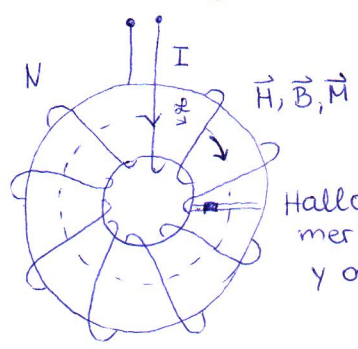 N
I
H⃗, B⃗, M⃗
Hallo
mer
y o